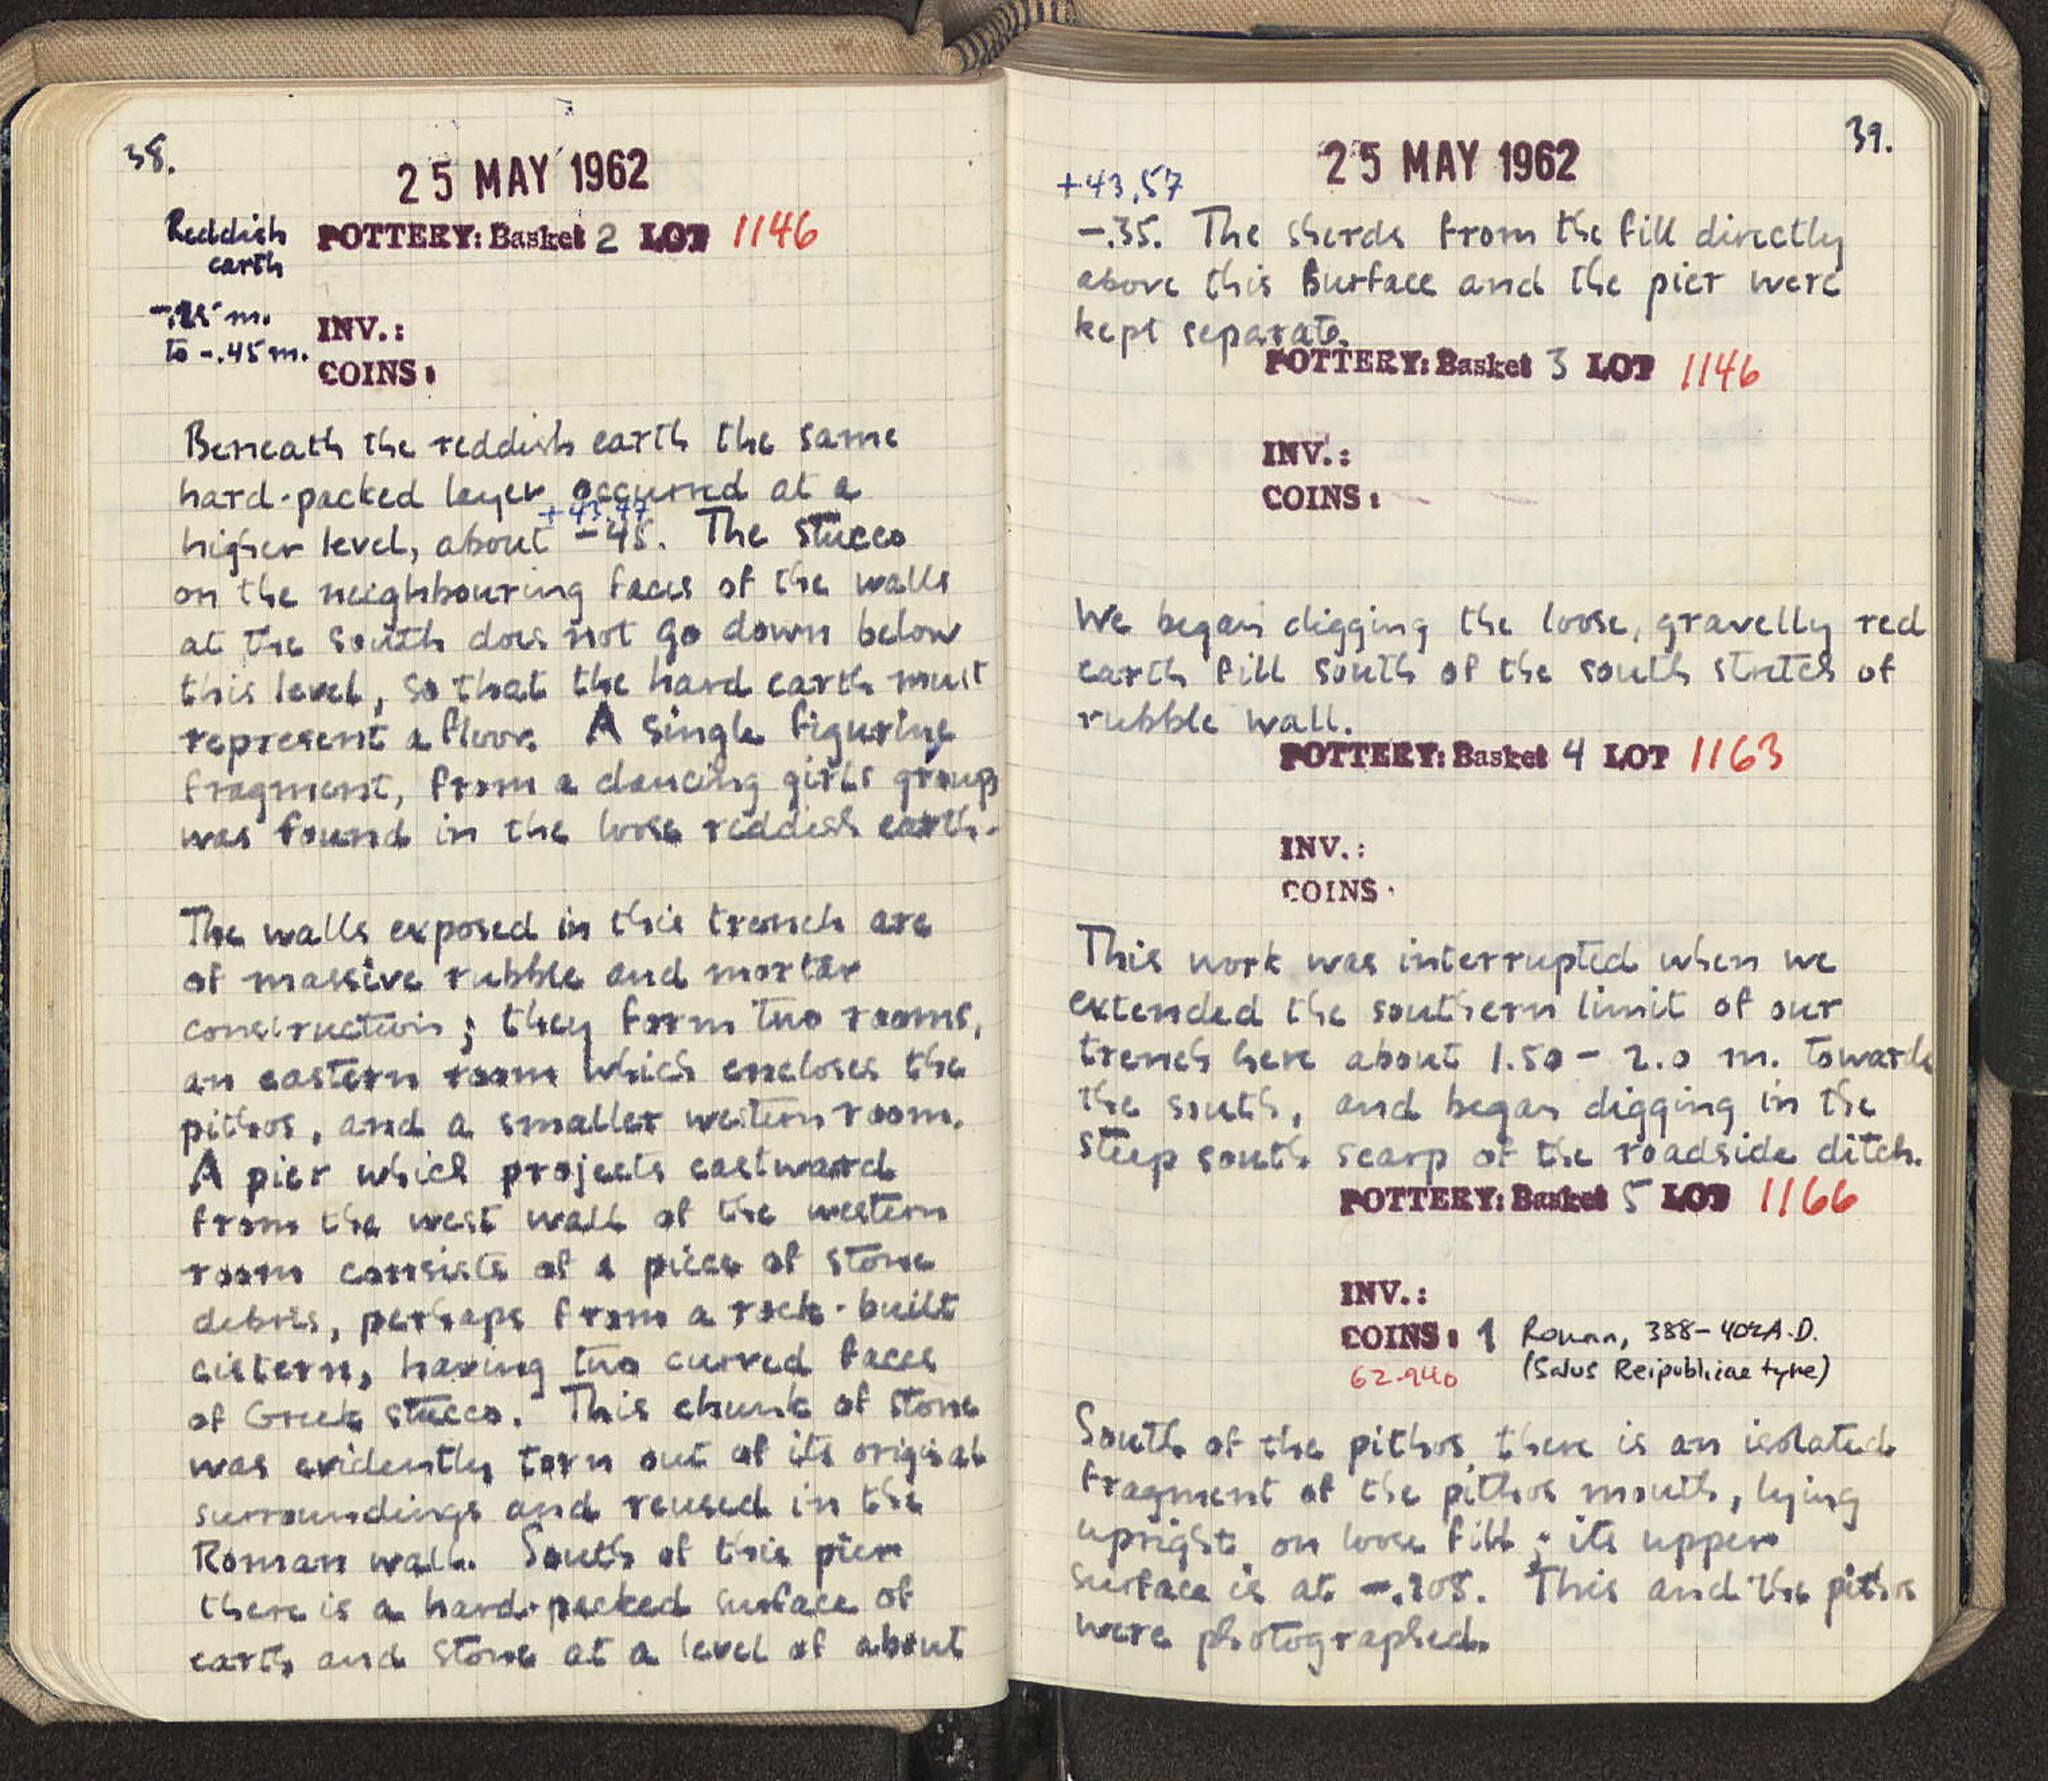 38.
25 MAY 1962
Reddish
earth
POTTERY: Basket 2 LOT 1146
-.25 m.
to -.45 m.
INV.:
COINS:
Beneath the reddish earth the same
hard-packed layer occurred at a
+43,47
higher level, about -45. The stucco
on the neighbouring faces of the walls
at the south does not go down below
this level, so that the hard earth must
represent a floor. A single figurine
fragment, from a dancing girls group
was found in the loose reddish earth.
The walls exposed in this trench are
of massive rubble and mortar
construction; they form two rooms,
an eastern room which encloses the
pithos, and a smaller western room.
A pier which projects eastward
from the west wall of the western
room consists of a piece of stone
debris, perhaps from a rock-built
cistern, having two curved faces
of Greek stucco. This chunk of stone
was evidently torn out of its original
surroundings and reused in the
Roman wall. South of this pier
there is a hard-packed surface of
earth and stone at a level of about
39.
25 MAY 1962
+43,57
-.35. The sherds from the fill directly
above this surface and the pier were
kept separate.
POTTERY: Basket 3 LOT 1146
INV.:
COINS:
We began digging the loose, gravelly red
earth fill south of the south stretch of
rubble wall.
POTTERY: Basket 4 LOT 1163
INV.:
COINS
This work was interrupted when we
extended the southern limit of our
trench here about 1.50 - 2.0 m. towards
the south, and began digging in the
steep south scarp of the roadside ditch.
POTTERY: Basket 5 LOT 1166
INV.:
COINS: 1 Roman, 388-402 A.D.
62-940 (Salus Reipublicae type)
South of the pithos there is an isolated
fragment of the pithos mouth, lying
upright on loose fill; its upper
surface is at -.105. This and the pithos
were photographed.